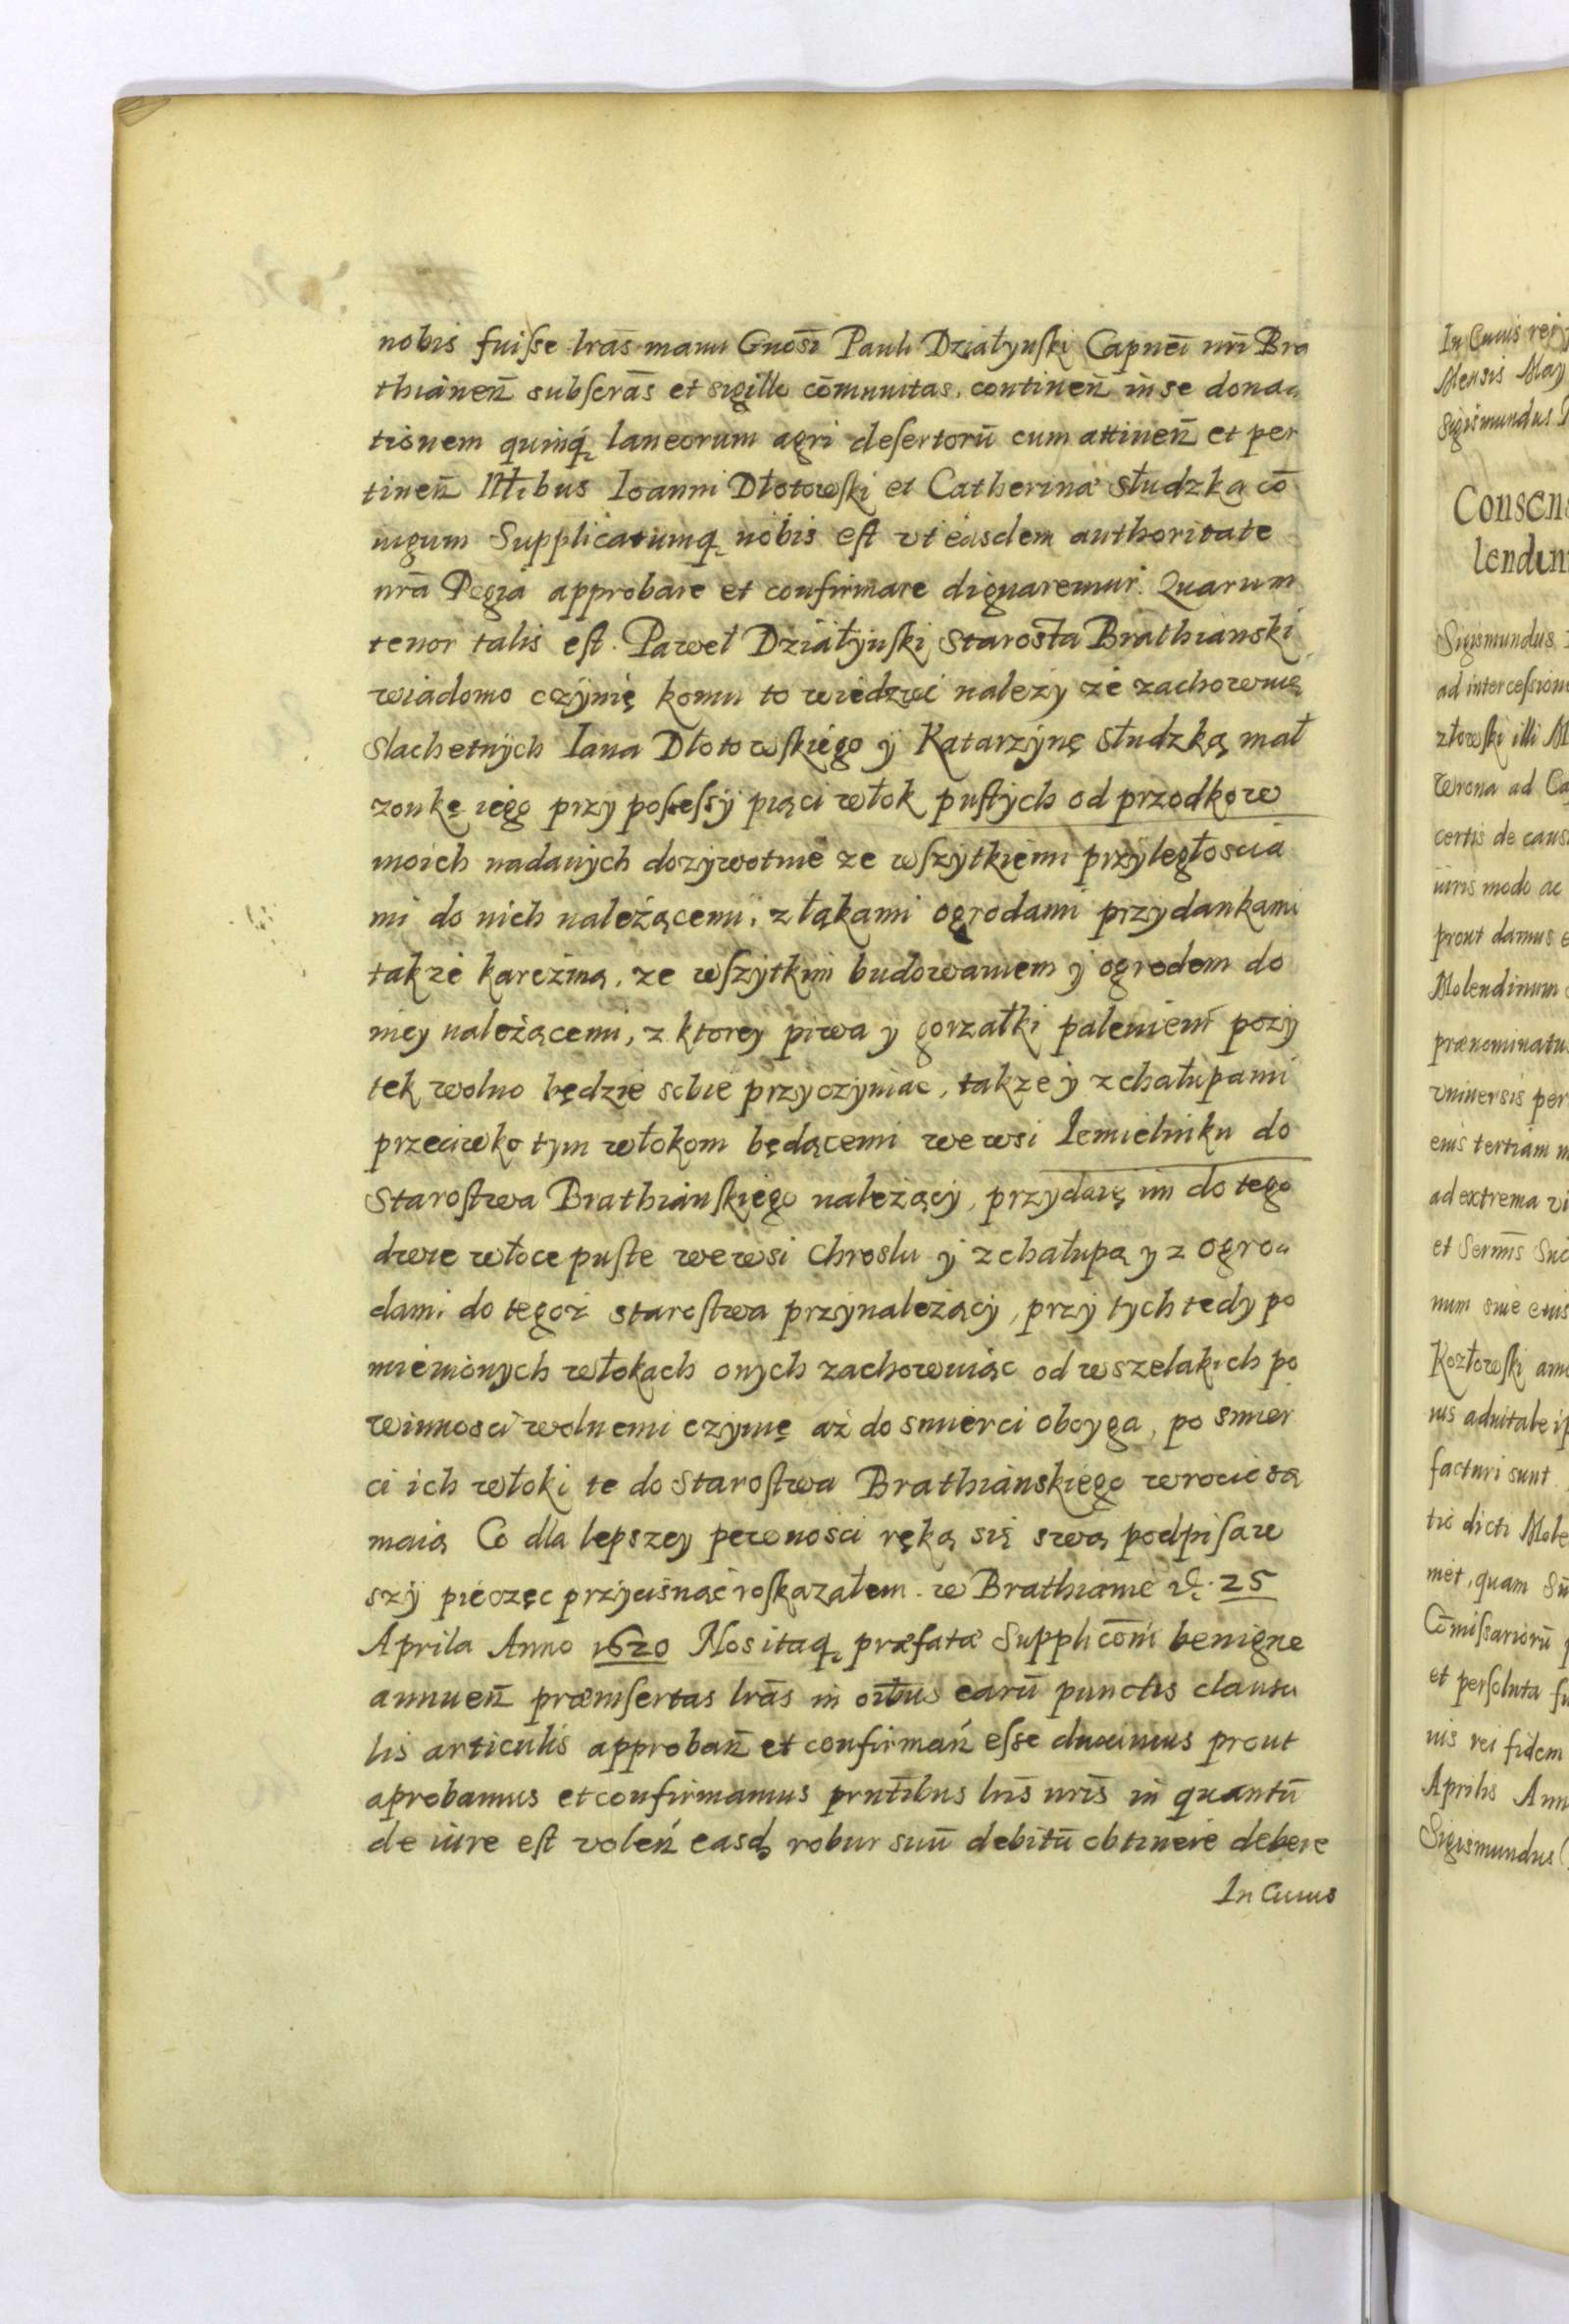 nobis fuiſse lrās manu Gnosī Pauli Działyńſki Capneī nrī Bra
thianen̄ subſcrās et sigillo cōmunitas. continen̄ in se dona
tionem quinq̨ laneorum agri deſertorū cum attinen̄ et per
tinen̄ Nłibus Ioanni Dłotowſki et Catherinæ Słudzka cō
iugum Supplicatumq̨ nobis eſt vt easdem authoritate
nrā Regia approbare et confirmare dignaremur. Quarum
tenor talis eſt. Paweł Działyńſki Starosta Brathianski
wiadomo czynię komu to wiedzieć należy że zachowuię
slachetnych Iana Dłotowſkiego y Katarzynę Słudzką mał
zonkę iego przy poſseſsy piąci włok puſtych od przodkow
moich nadanych dozywotnie ze wſzytkiemi przyległoscia
mi do nich należącemi, z łąkami ogrodami przydankami
także karczmą, ze wſzytkim budowaniem y ogrodem do
niey należącemi, z ktorey piwa y gorzałki paleniem pozy
tek wolno będzie sobie przyczyniac, takze y z chałupami
przeciwko tym włokom będącemi we wsi Iemielniku do
Staroſtwa Brathianſkiego należący, przydaię im do tego
dwie włoce puſte we wsi Chroslu y z chałupą y z ogro
dami do tegoż staroſtwa przynależący, przy tych tedy po
mienionych włokach onych zachowuiąc od wszelakich po
winnosci wolnemi czynię aż do smierci oboyga, po smier
ci ich włoki te do Staroſtwa Brathianskiego wrocic są
maią Co dla lepszey pewnosci ręką się swą podpiſaw
szy pieczęc przycisnąć roſkazałem. w Brathianie d. 25
Aprila Anno 1620 Nos itaq̨ præfatæ Supplicōni benigne
annuen̄ præinſertas lrās in oībus earū punctis clausu
lis articulis approban̄ et confirman̄ eſse duximus prout
aprobamus et confirmamus prntībus lrīs nrīs in quantū
de iure eſt volen̄ easd̨ robur suū debitū obtinere debere
In Cuius
In Cuius rei
Mensis May
Sigismundus
Consens
lendin
Sigismundus
ad interceſsion
złowſki illi
certis de caus
iuris modo ac
prout damus e
Molendinum
prænominatu
vniuersis per
eius tertiam
ad extrema vi
et Sermīs Suc
num siue
Kozłowſki
ius aduitale
facturi sunt
tio dicti Mole
met, quam
Cōmiſsariorū
et perſoluta
ius rei fidem
Aprilis Ann
Sigismundus